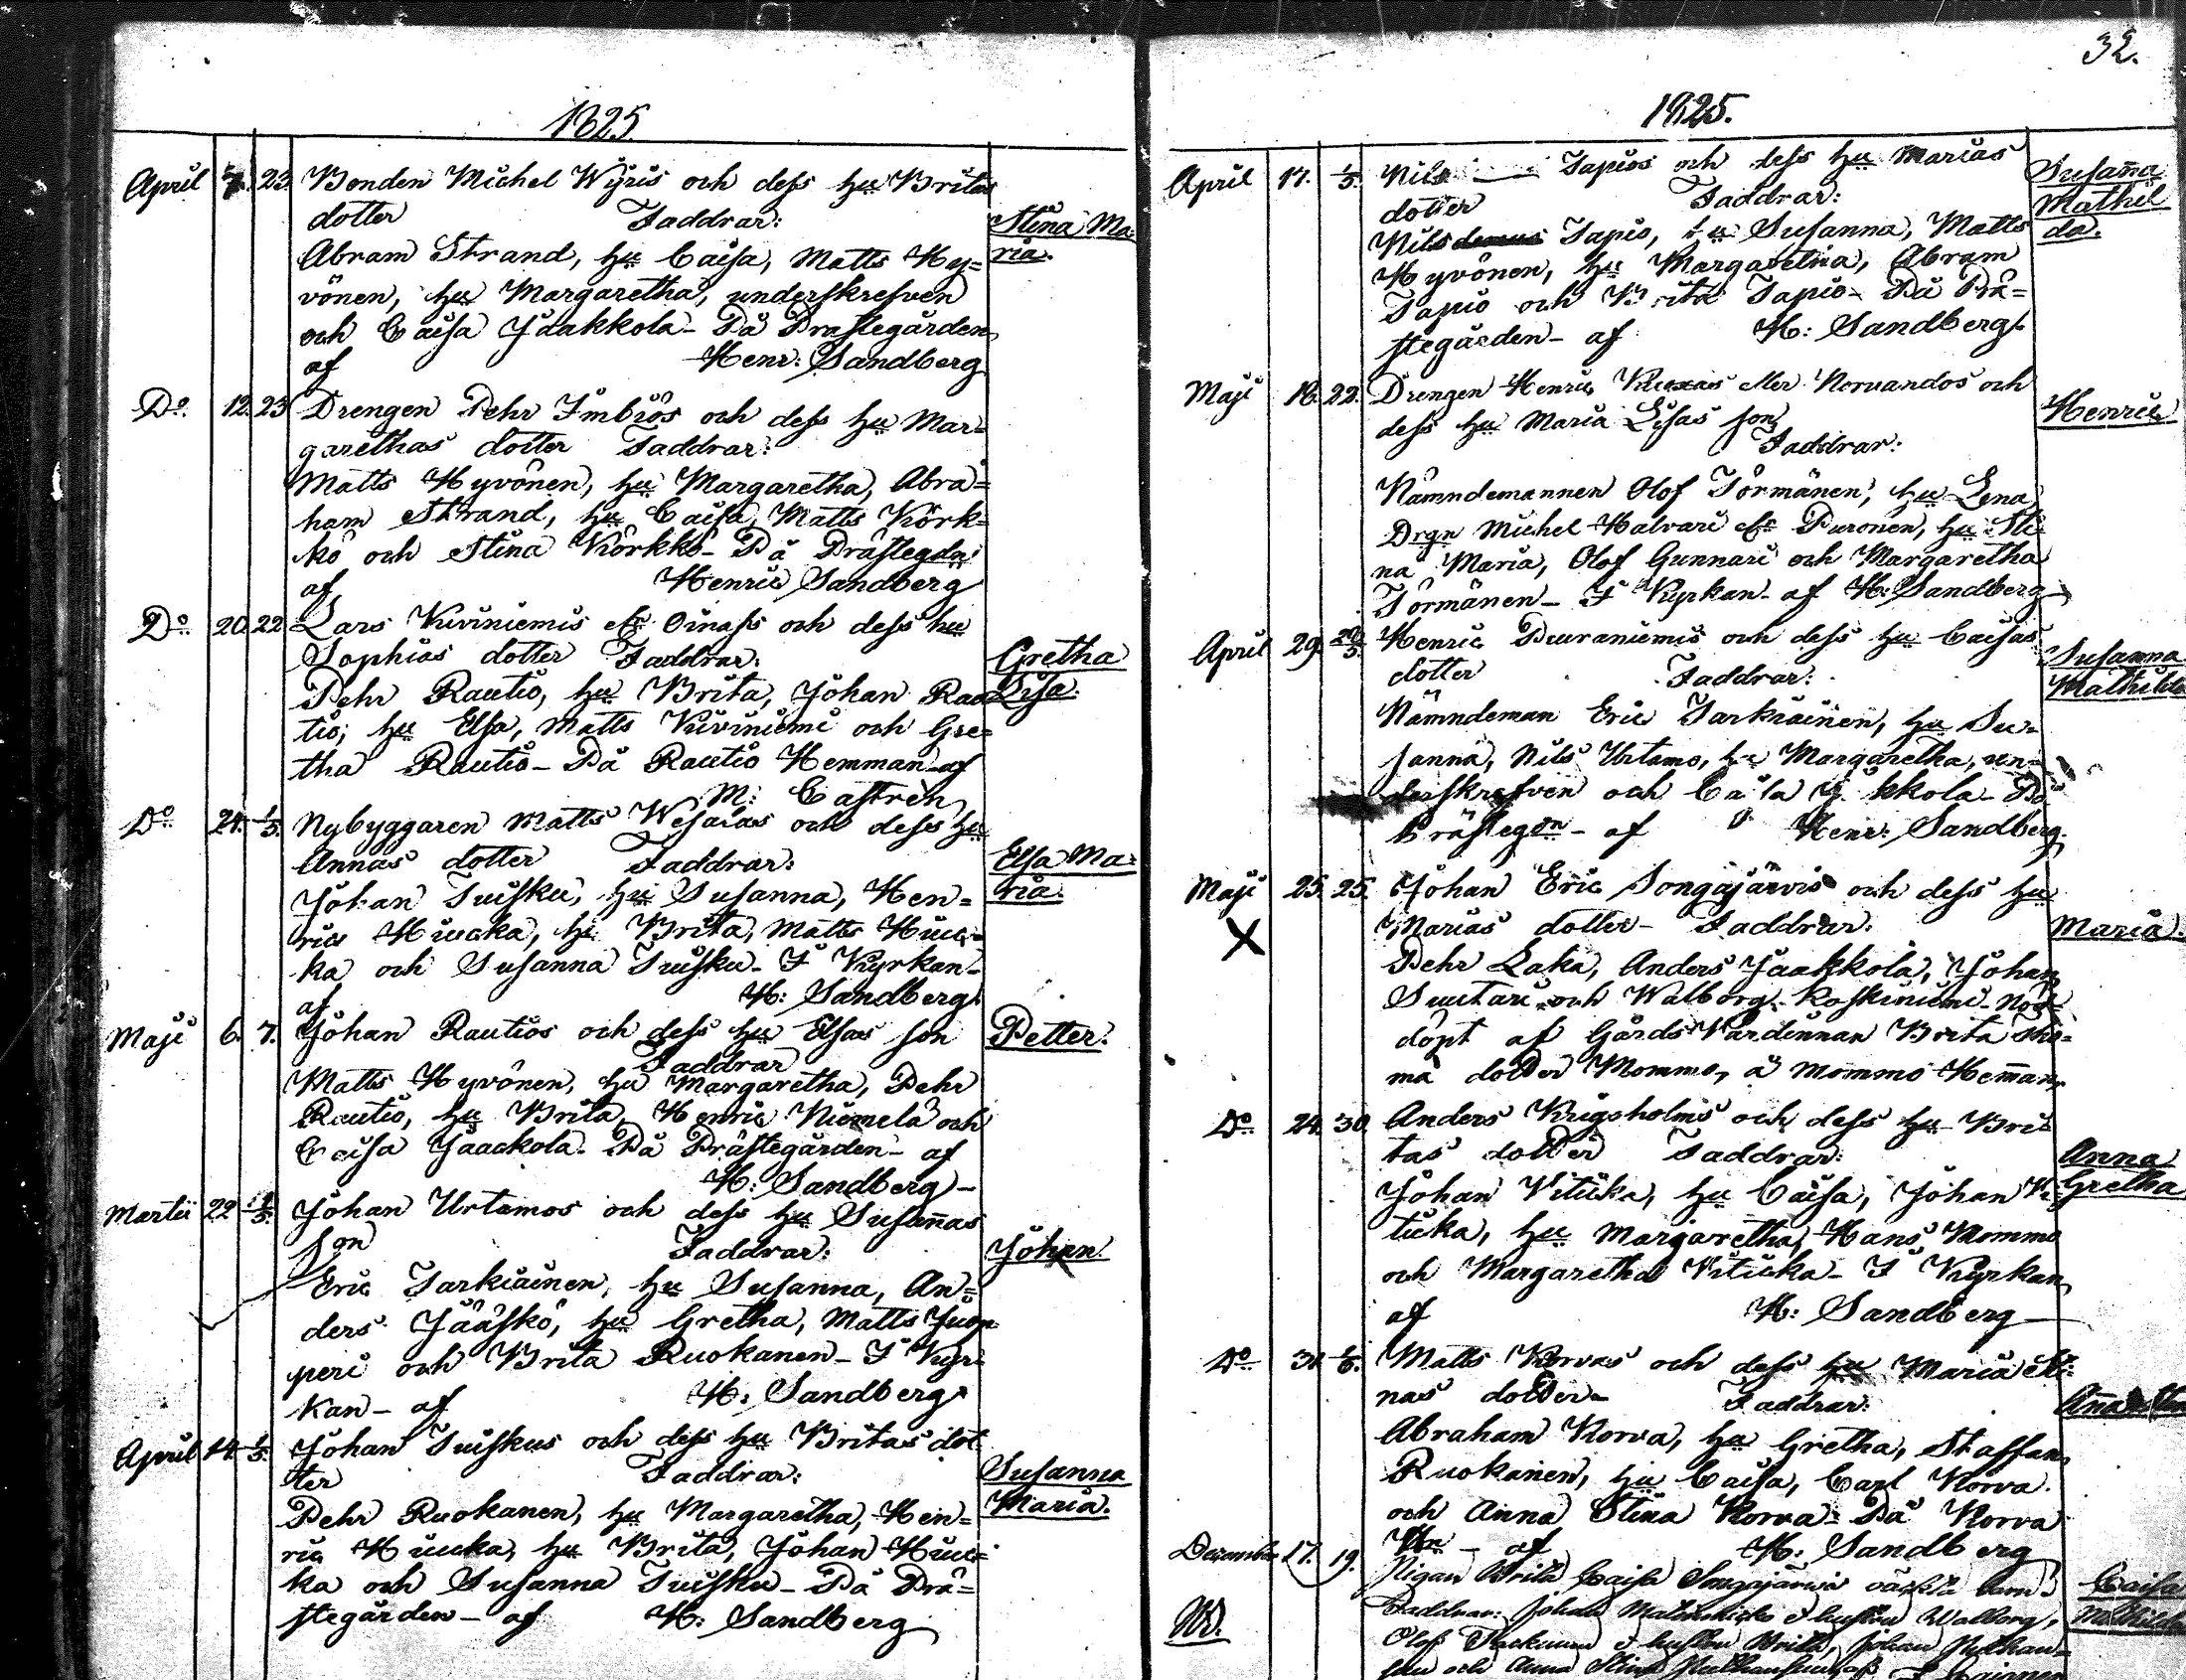 32.
1825.
April 7. 23. Bonden Michel Wÿris och dess hu Britas
dotter Faddrar: Stina Ma=
Abram Strand, hu Caisa, Matts Hy= ria.
vönen, hu Margaretha, underskrefven
och Caisa Jaakkola - På Prästegården
af Henr: Sandberg
Do 12. 23 Drengen Pehr Imbrös och dess hu Mar=
garethas dotter Faddrar:
Matts Hyvönen, hu Margaretha, Abra=
ham Strand, hu Caisa, Matts Körk=
kö och Stina Körkkö - På Prästegdn
af Henric Sandberg
Do 20. 22 Lars Kiviniemis Oinass och dess hu
Sophias dotter Faddrar: Gretha
Pehr Rautio, hu Brita, Johan Rau Lisa.
tio, hu Elsa, Matts Kiviniemi och Gre=
tha Rautio - På Rautio Hemman af
M: Castrén
Do 24. 1/5. Nybyggaren Matts Wesaias och dess hu
Annas dotter Faddrar: Elsa Ma=
Johan Tuisku, hu Susanna, Hen= ria.
ric Hiucka, hu Brita, Matts Hiuc=
ka och Susanna Tuisku - I Kyrkan -
af H: Sandberg.
Maji 6. 7. Johan Rautios och dess hu Elsas son Petter.
Faddrar
Matts Hyvönen, hu Margaretha, Pehr
Rautio, hu Brita, Henric Niemelä och
Caisa Jaackola - På Prästegården - af
H: Sandberg -
Martii 22 1/5. Johan Urtamos och dess hu Susannas
son Faddrar: Johan
Eric Tarkiainen, hu Susanna, An=
ders Jääskö, hu Gretha, Matts Juop
peri och Brita Ruokanen - I Kyr=
kan - af H: Sandberg
April 14. 1/5. Johan Tuiskus och dess hu Britas dot
ter Faddrar: Susanna
Pehr Ruokanen, hu Margaretha, Hen= Maria.
ric Hiucka, hu Brita, Johan Hiuc=
ka och Susanna Tuisku - På Prä=
stegården - af H: Sandberg
1825.
April 17. 1/5. Nils Tapios och dess hu Marias Susanna
dotter Faddrar: Mathel
Nils Tapio, hu Susanna, Matts da.
Hyvönen, hu Margaretha, Abram
Tapio och Brita Tapio - På Prä=
stegården - af H: Sandberg.
Maji 18. 22. Drengen Henric eller Norvandos och
dess hu Maria Lisas son Henric
Faddrar:
Nämndemannen Olof Törmänen, hu Lena
Drgn Michel Halvari Puronen, hu Sti
na Maria, Olof Gunnari och Margaretha
Törmänen - I Kyrkan - af H: Sandberg -
April 29. Henric Puuraniemis och dess hu Caisas Susanna
dotter Faddrar: Mathilda
Nämndeman Eric Tarkiainen, hu Su=
sanna, Nils Urtamo, hu Margaretha, un=
derskrefven och På
Prästegdn - af Henr: Sandberg.
Maji 25. 25. Johan Eric Songajärvis och dess hu
X Marias dotter - Faddrar: Maria.
Pehr Laka, Anders Jaakkola, Johan
Suutari och Walborg Koskiniemi - Nöd
döpt af Gårds Värdinnan Brita Tho=
mä dotter Mommo, å Mommo Hemman.
Do 24. 30. Anders Krigsholms och dess hu Bri=
tas dotter Faddrar: Anna
Johan Viticka, hu Caisa, Johan Vi Gretha
ticka, hu Margaretha, Hans Mommo
och Margaretha Viticka - I Kyrkan,
af H: Sandberg -
Do 31. 1/6. Matts Korvas och dess hu Maria Sti:
nas dotter - Faddrar: Anna
Abraham Korva, hu Gretha, Staffan
Ruokanen, hu Caisa, Carl Korva
och Anna Stina Korva - På Korva
Hn - af H: Sandberg
December 17. 19. Pigan Brita Caisa Songajärvis oäkta barn. Caisa
Faddrar: Johan hustru Walborg, Mathilda
Olof hustru Brita, Johan
son och Anna Stina